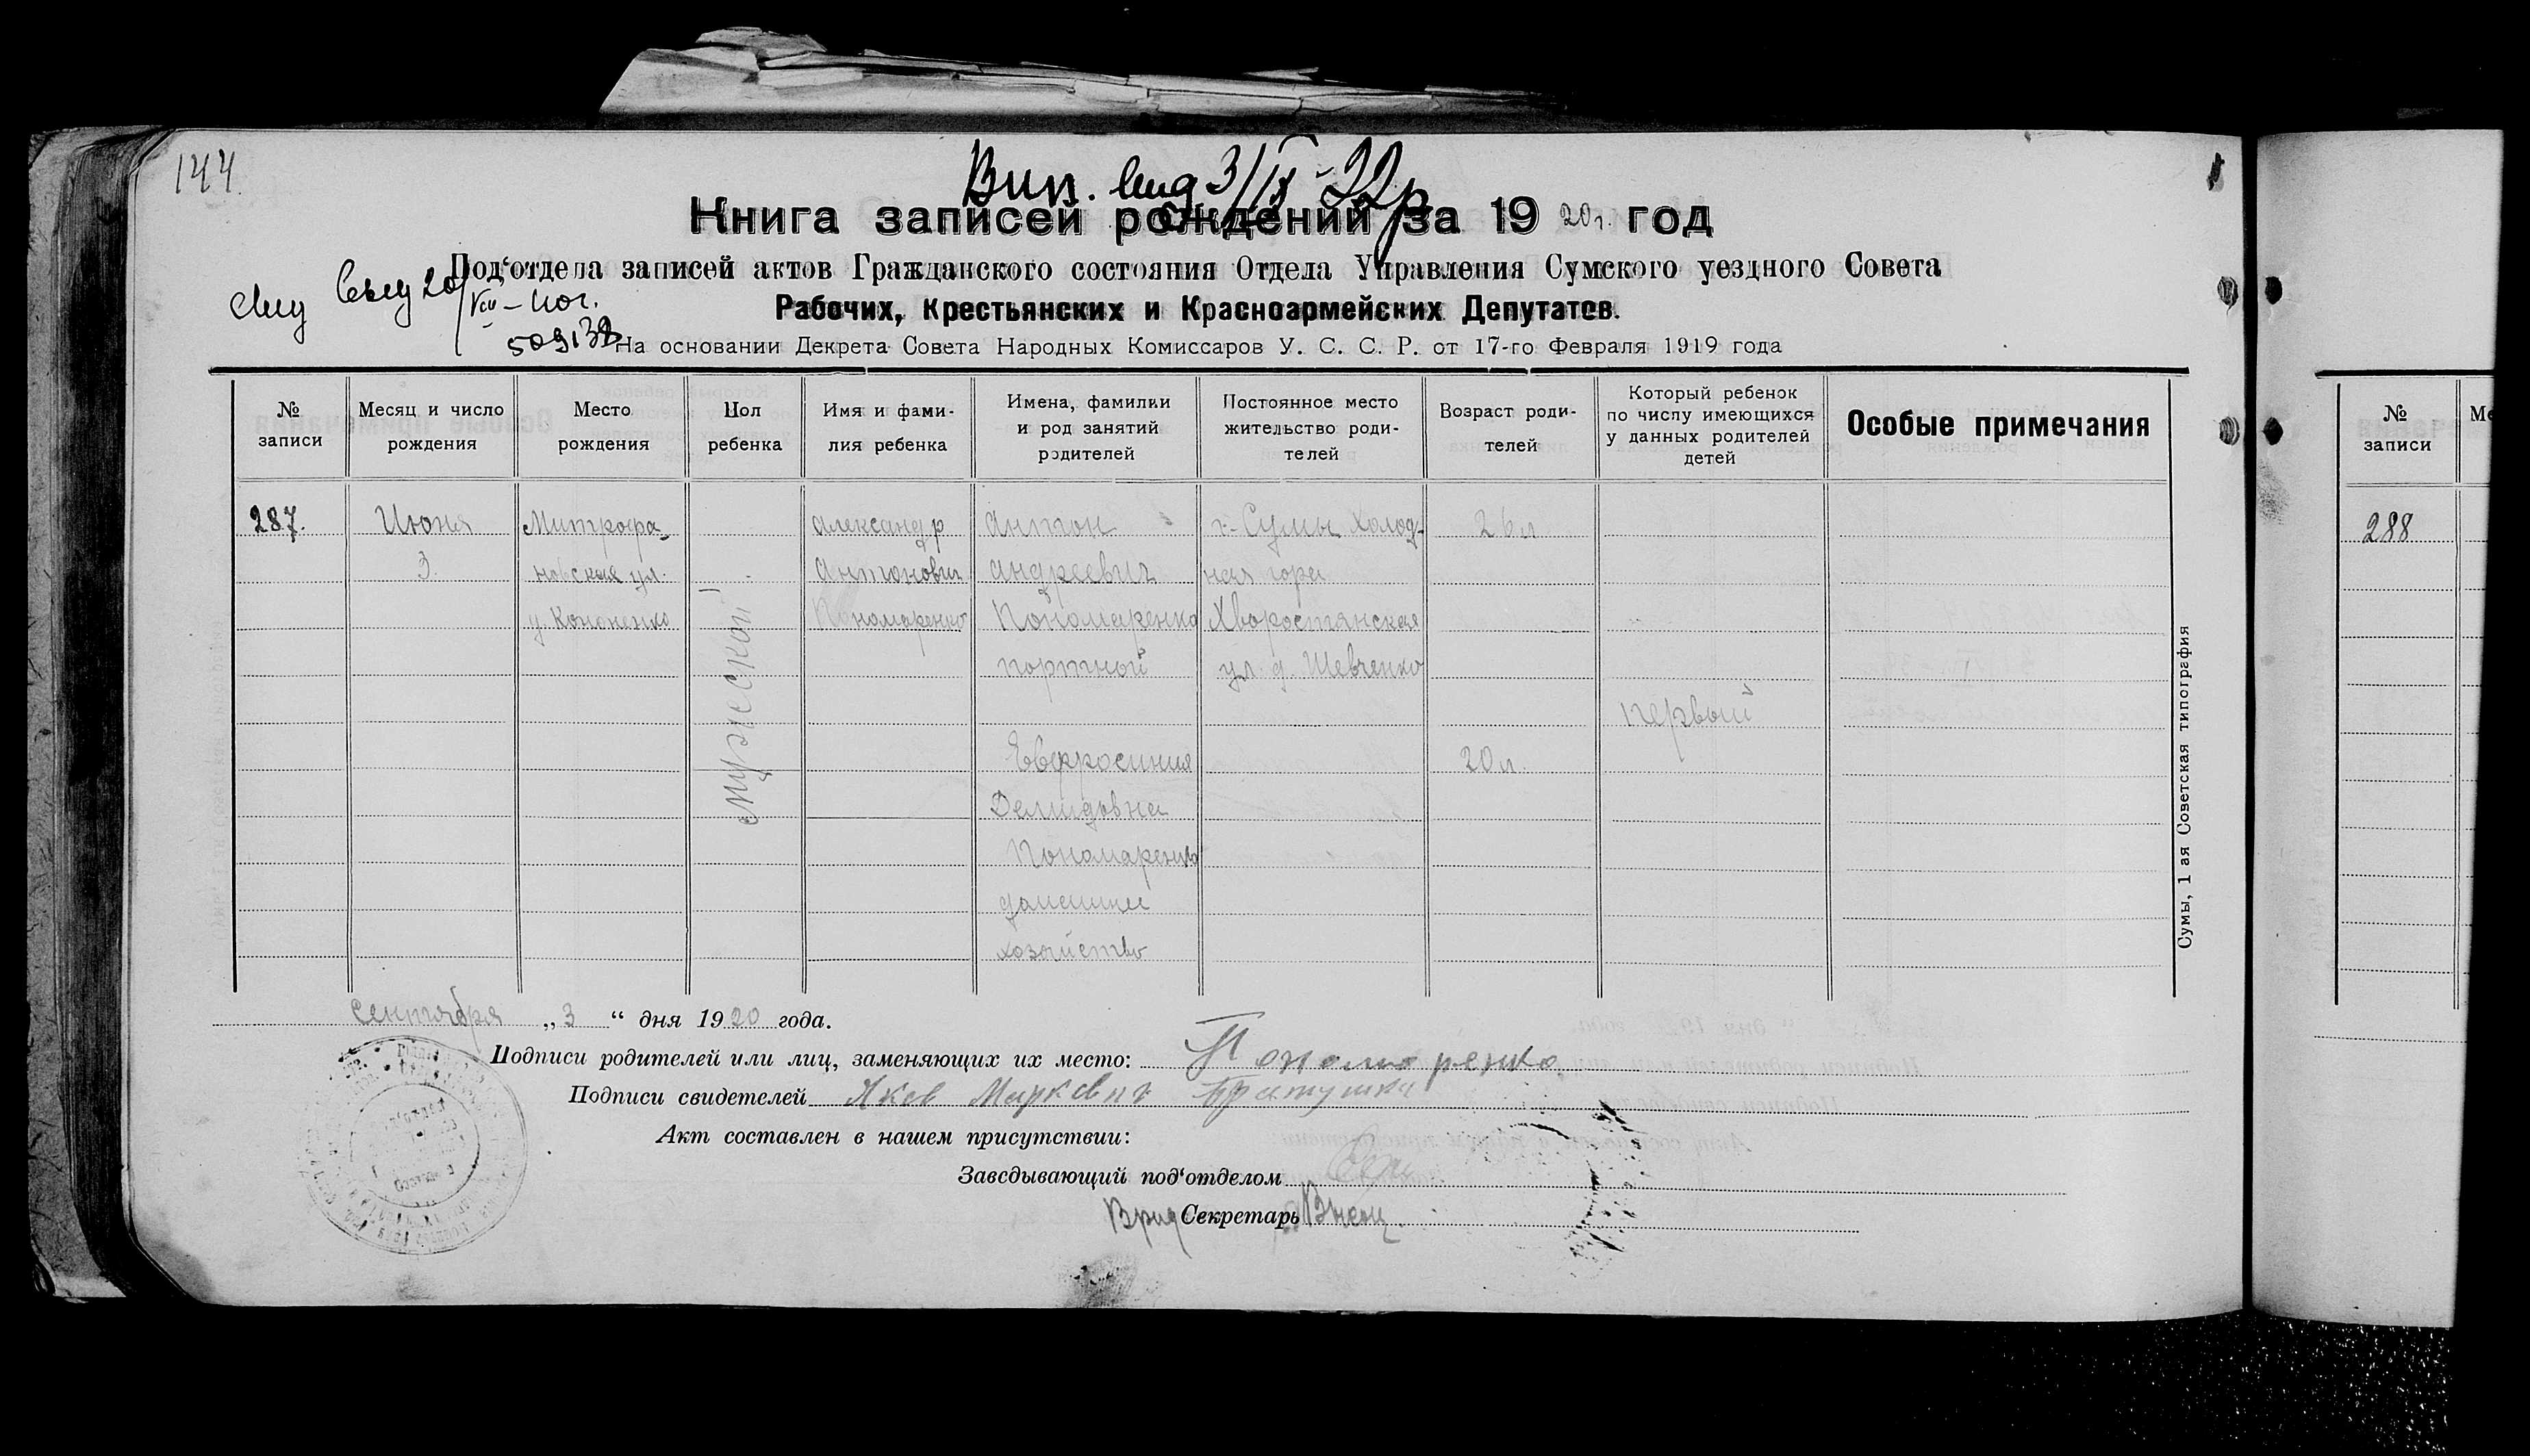 144.
Вип. 3/IX-22р
Книга записей рождений за 1920г. год
Под‘отдела записей актов Гражданского состояния Отдела Управления Сумского уездного Совета
Рабочих, Крестьянских и Красноармейских Депутатов.
20/VIII-40г.
На основании Декрета Совета Народных Комиссаров У. С. С. Р. от 17-го Февраля 1919 года
№ записи
Месяц и число рождения
Место рождения
Пол ребенка
Имя и фами-
лия ребенка
Имена, фамилии
и род занятий
родителей
Постоянное место
жительство роди-
телей
Возраст роди-
телей
Который ребенок
по числу имеющихся
у данных родителей
детей
Особые примечания
287.
Июня
3.
Митрофа-
новская ул.
у Кононенко
мужеской
Александр
Антонович
Пономаренко
Антон
Андреевич
Пономаренко
портной
Евфросиния
Демидовна
Пономаренко
домашнее
хозяйство
г. Сумы Холод-
ная гора
Хворостянская
ул. д. Шевченко
26 л
20 л.
первый
Сумы, 1 ая Советская типография
Сентября „3“ дня 1920 года.
Подписи родителей или лиц, заменяющих их место: Пономаренко
Подписи свидетелей Яков Маркович Братушка
Акт составлен в нашем присутствии:
Заведывающий под‘отделом
Врид Секретарь
№ записи
288